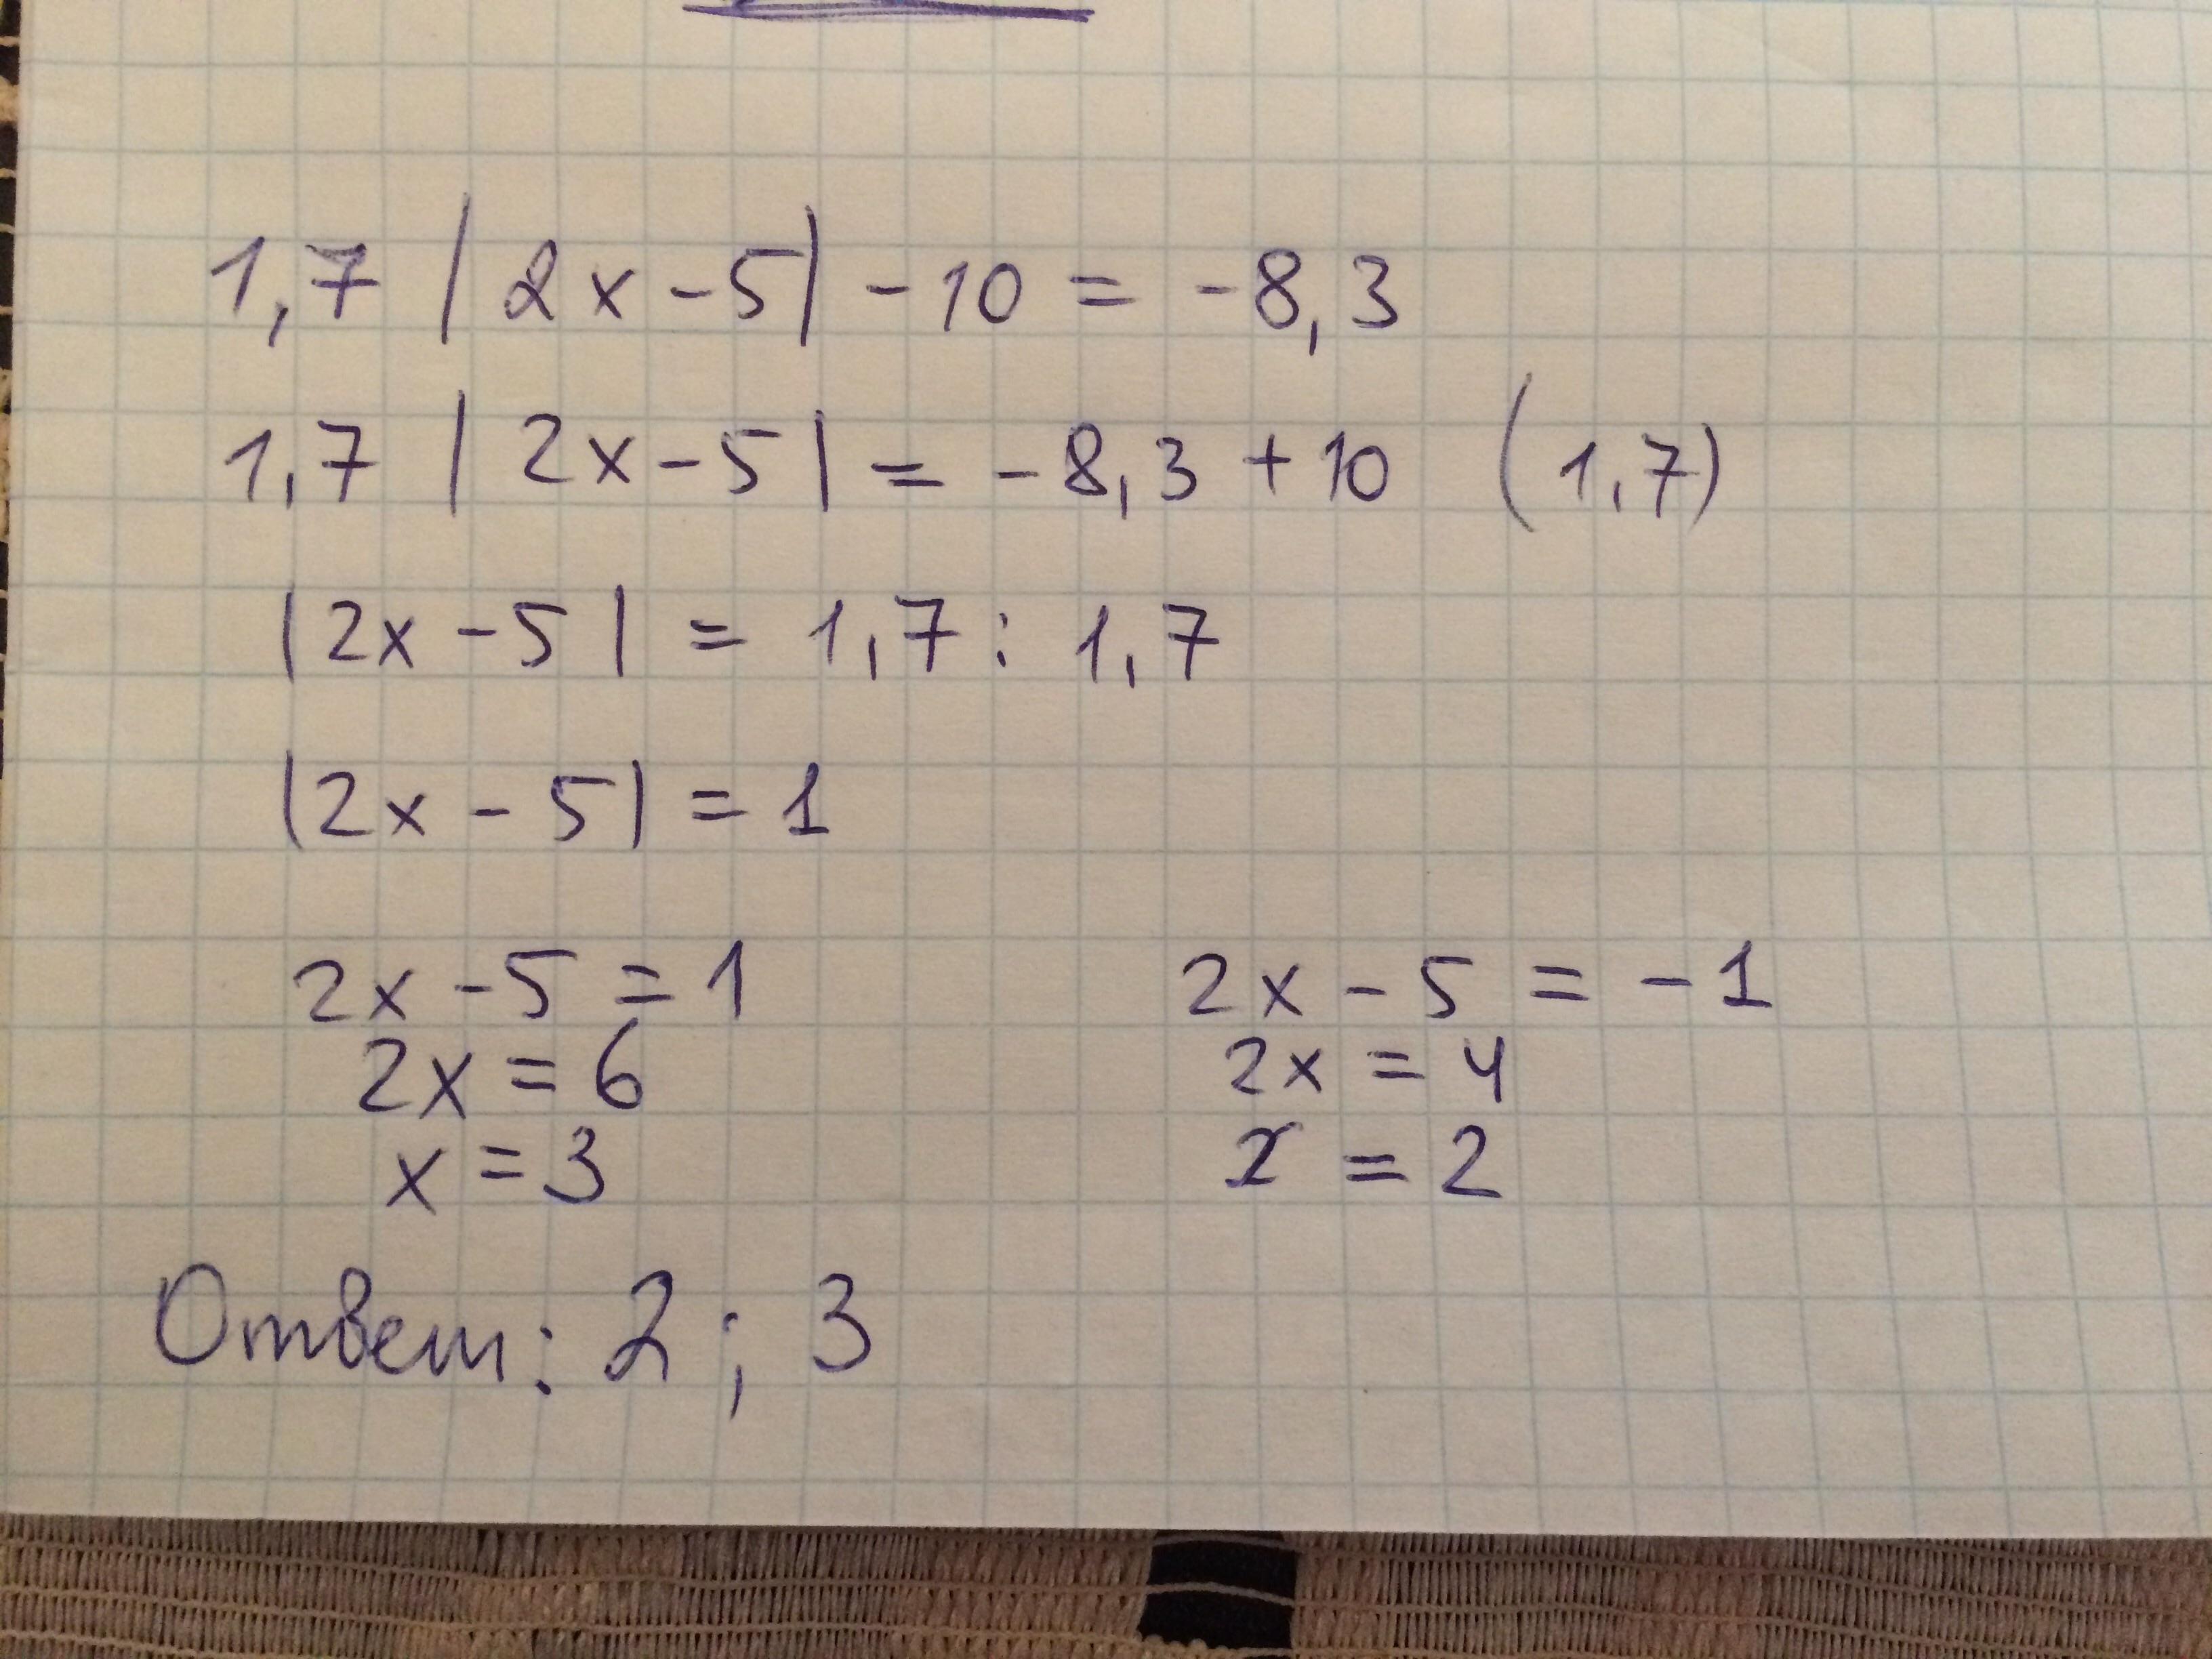 1,7 |2x-5| - 10 = -8,3
1,7 |2x-5| = -8,3 + 10 (1,7)
|2x-5| = 1,7 : 1,7
|2x-5| = 1
2x-5=1 2x-5=-1
2x=6 2x=4
x=3 x=2
Ответ: 2; 3